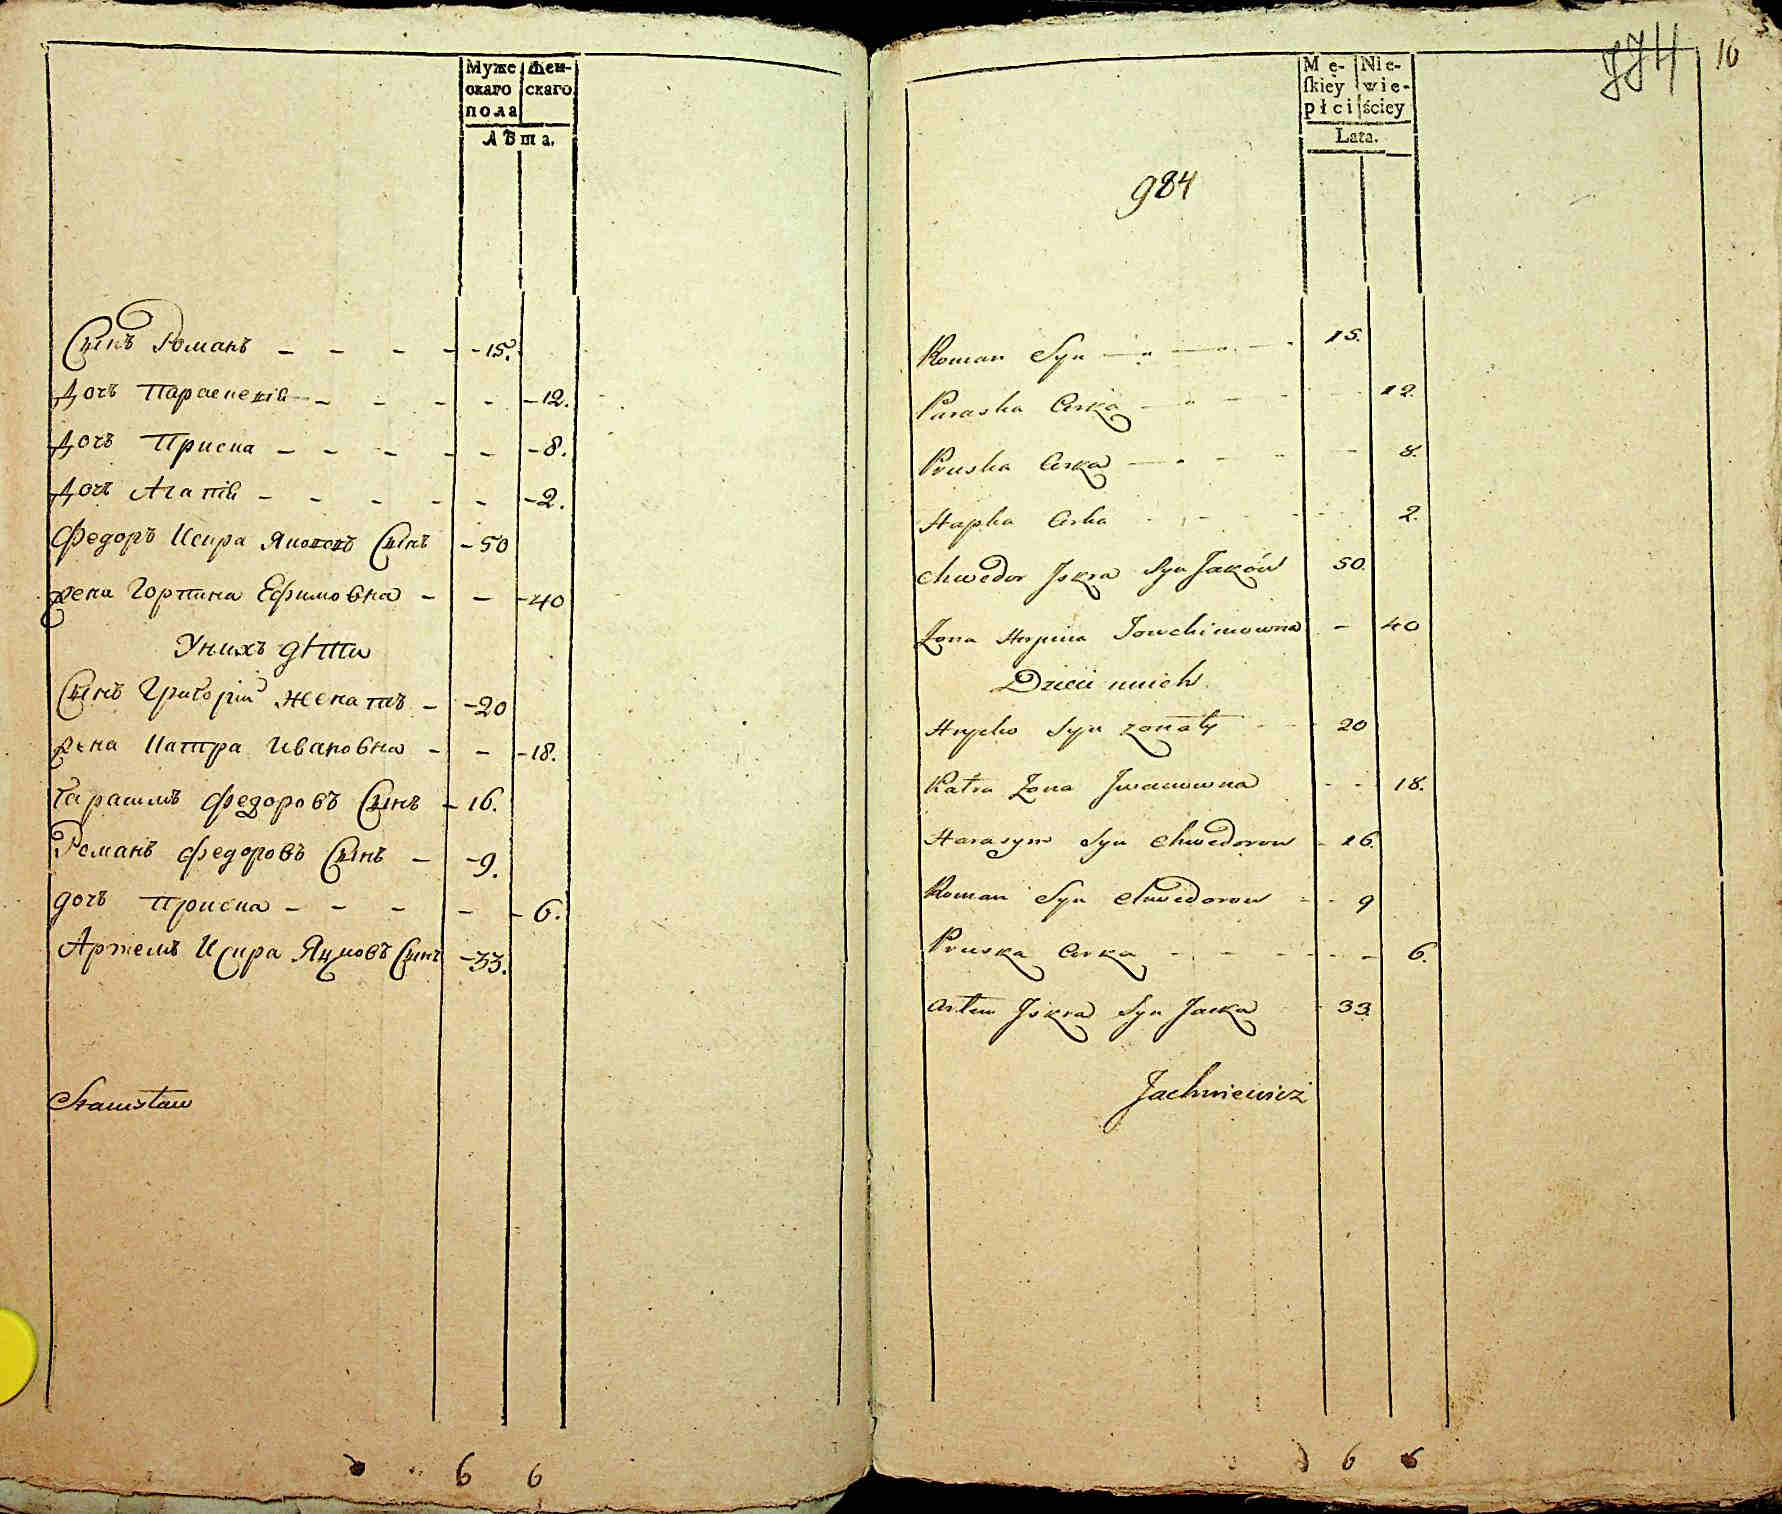 Муже Жен-
скаго скаго
пола
Лѣта.
Сынъ Романъ - - - - 15.
Дочъ Параскевія - - - - 12.
Дочъ Приска - - - - - 8.
Дочъ Агапія - - - - - 2.
Федоръ Искра Яковъ Сынъ - 50
жена Горпина Ефимовна - - 40
Унихъ дѣти
Сынъ Григорій женатъ - 20
жена Катра Ивановна - - 18.
Гарасимъ Федоровъ Сынъ - 16.
Романъ Федоровъ Сынъ - 9.
дочъ Приска - - - - 6.
Артемъ Искра Яцковъ Сынъ - 33.
Stanisław
6 6
774 10
Mę- Nie-
skiey wie-
płci ściey
Lata.
984
Roman Syn - - - 15.
Paraska Corka - - - 12.
Pruska Corka - - - 8.
Hapka Corka - - - 2.
Chwedor Jskra Syn Jaków 50.
Żona Horpina Jowchimowna - 40
Dzieci unich
Hryćko Syn żonaty - 20
Katra Żona Jwanowna - - 18.
Harasym Syn Chwedorow - 16.
Roman Syn Chwedorow - - 9
Pruska Corka - - - 6.
Artem Jskra Syn Jacka - 33.
Jachniewicz
6 6